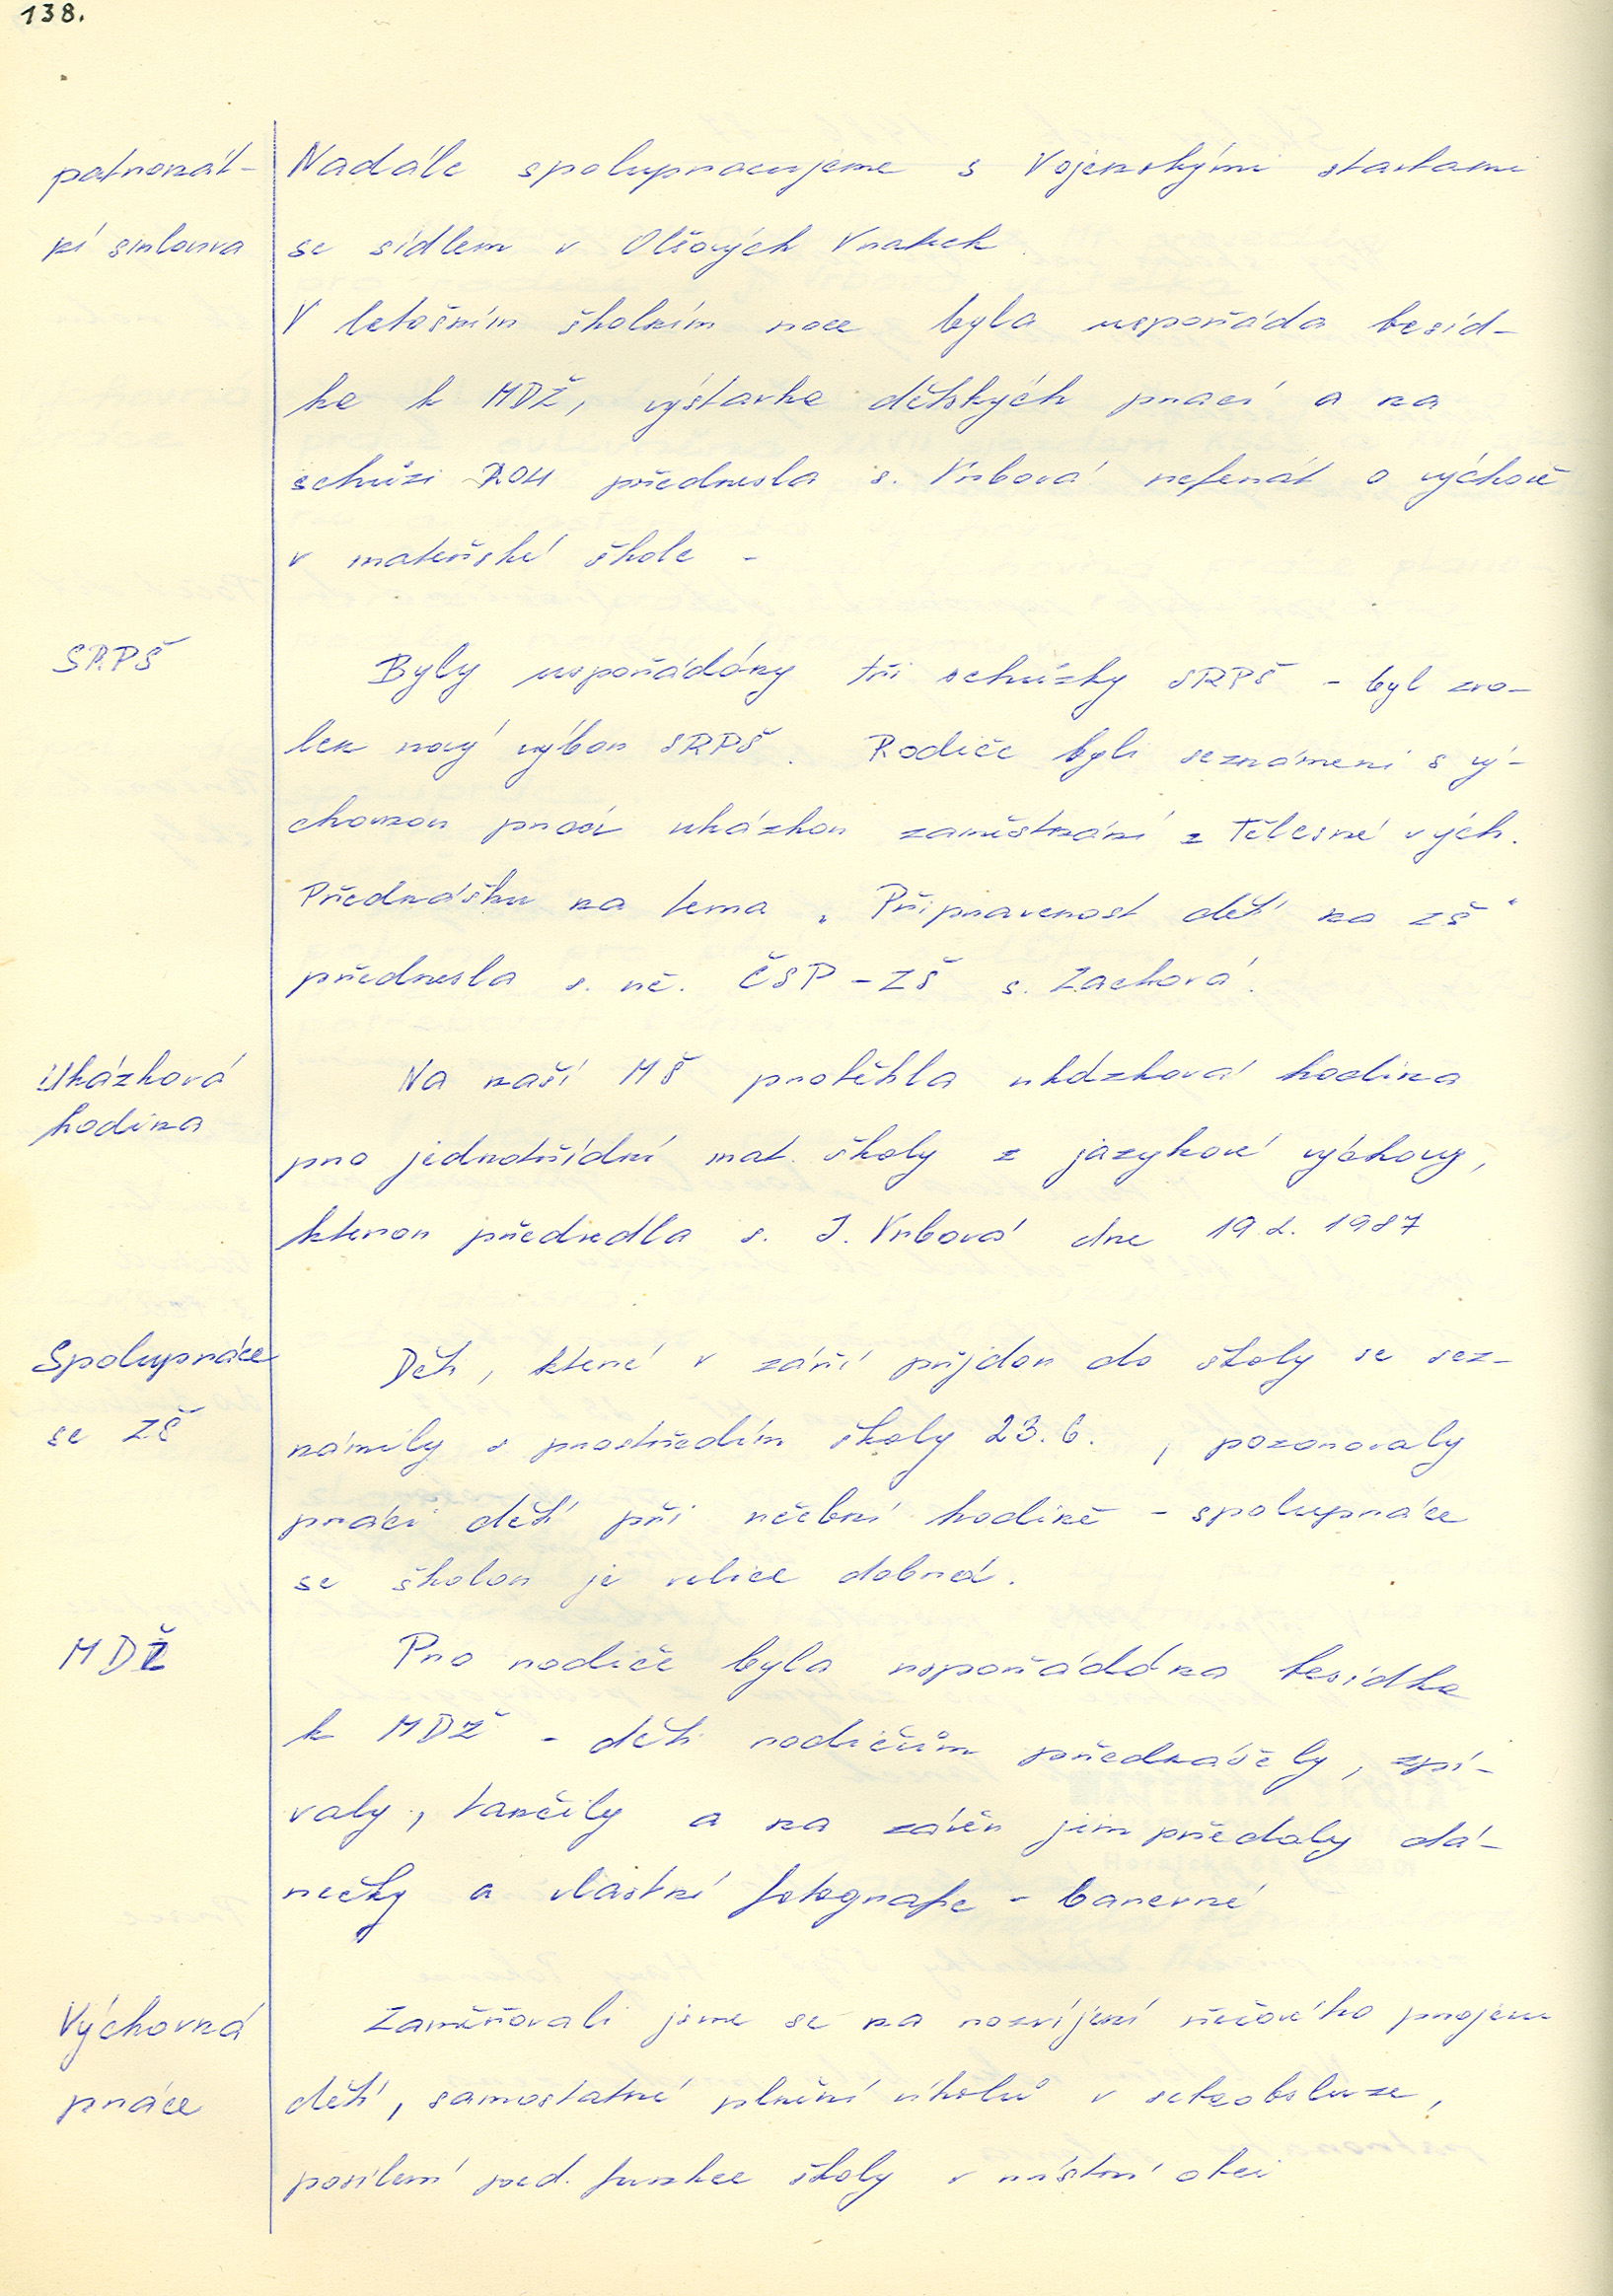 138.
patronát-
ní smlouva
Nadále spolupracujeme s Vojenskými stavbami
se sídlem v Olšových Vratech.
V letošním školním roce byla uspořáda besíd-
ka k MDŽ, výstavka dětských prací a na
schůzi ROH přednesla s. Vrbová referát o výchově
v mateřské škole -
SRPŠ
Byly uspořádány tři schůzky SRPŠ - byl zvo-
len nový výbor SRPŠ. Rodiče byli seznámeni s vý-
chovnou prací ukázkou zaměstnání z Tělesné vých.
Přednášku na tema „Připravenost dětí na ZŠ"
přednesla s. uč. ČSP - ZŠ s. Zachová.
Ukázková
hodina
Na naší MŠ proběhla ukázková hodina
pro jednotřídní mat. školy z jazykové výchovy,
kterou předvedla s. J. Vrbová dne 19.2. 1987
Spolupráce
se ZŠ
Děti, které v září půjdou do školy se sez-
námily s prostředím školy 23.6. , pozorovaly
práci dětí při učební hodině - spolupráce
se školou je velice dobrá.
MDŽ
Pro rodiče byla uspořádána besídka
k MDŽ - děti rodičům přednášely, zpí-
valy, tančily a na závěr jim předaly dá-
rečky a vlastní fotografie - barevné
Výchovná
práce
Zaměřovali jsme se na rozvíjení řečového projevu
dětí, samostatné plnění úkolů v sebeobsluze,
posílení ped. funkce školy v místní obci